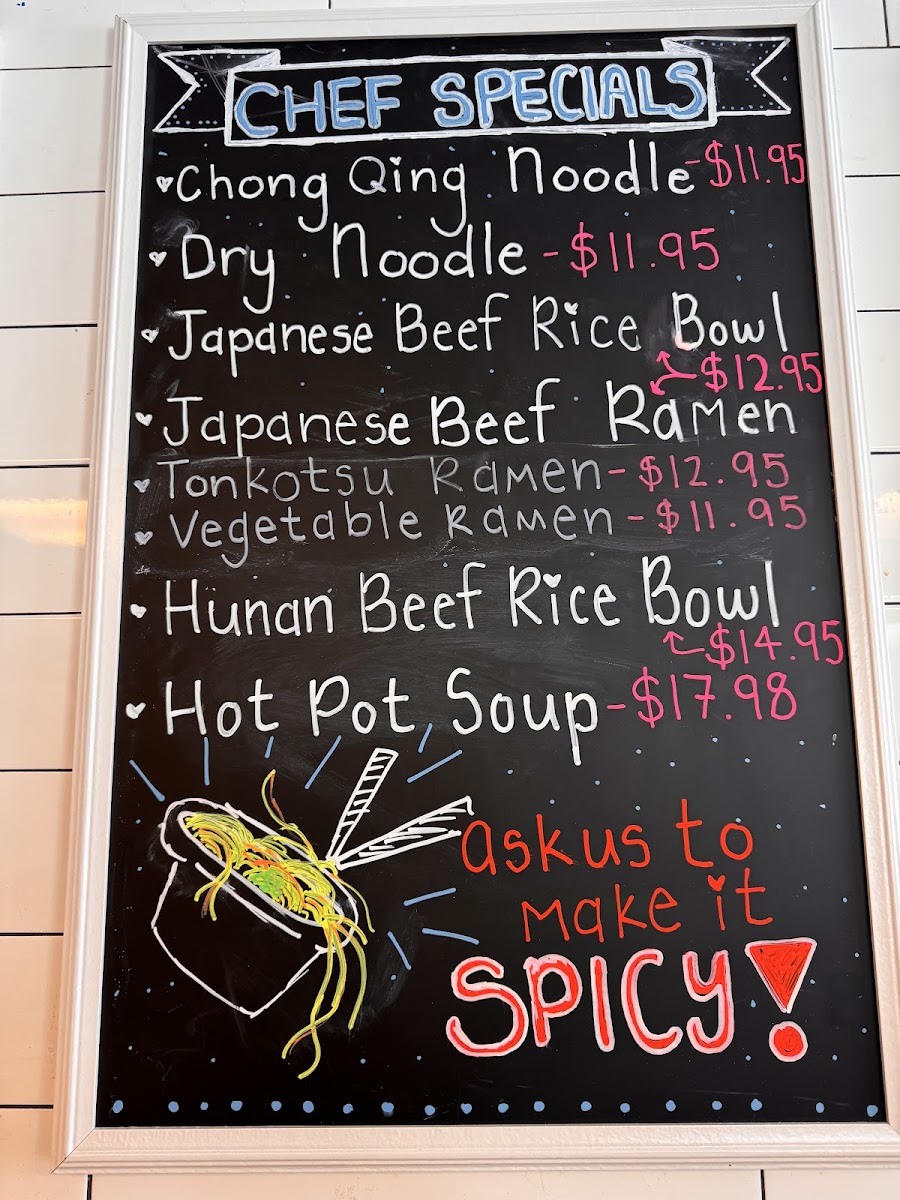 CHEF SPECIALS
Chong Qing Noodle - $11.95
Dry Noodle - $11.95
Japanese Beef Rice Bowl
$12.95
Japanese Beef Ramen
Tonkotsu Ramen - $12.95
Vegetable Ramen - $11.95
Hunan Beef Rice Bowl
$14.95
Hot Pot Soup - $17.98
ask us to
make it
SPICY!